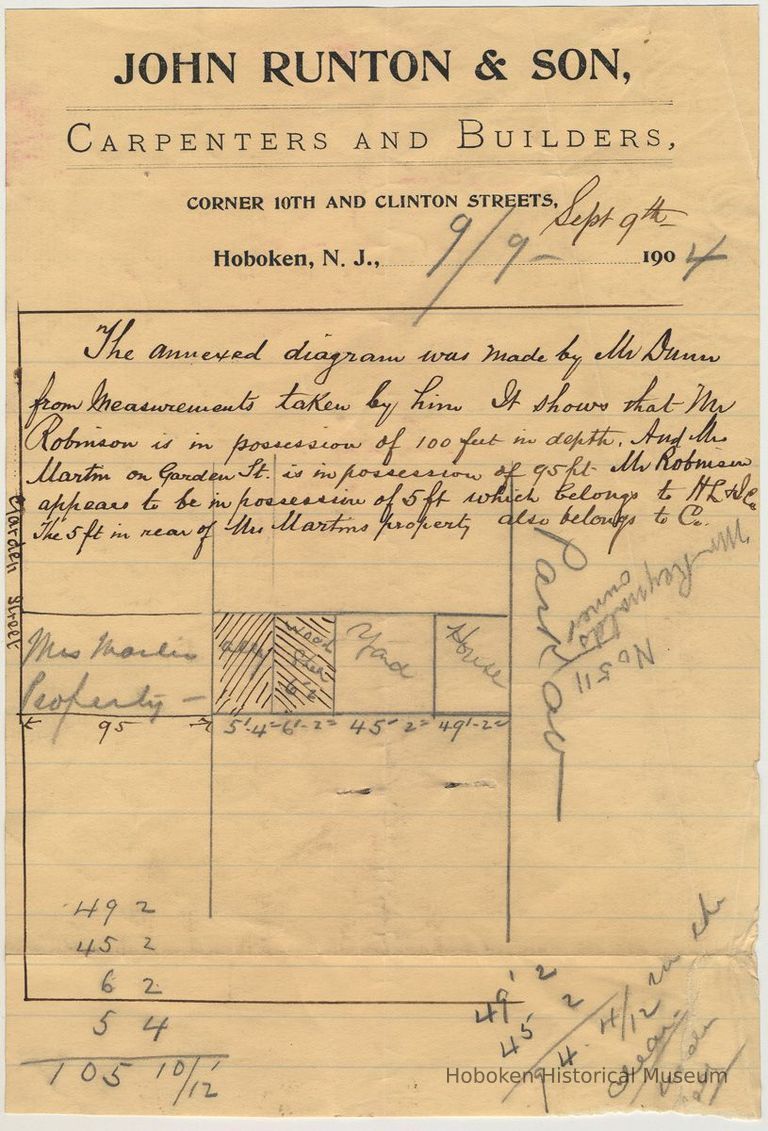 JOHN RUNTON & SON,
CARPENTERS AND BUILDERS,
CORNER 10TH AND CLINTON STREETS,
Sept 9th
Hoboken, N. J., 9/9- 1904
The annexed diagram was made by Mr Dunn
from Measurements taken by him It shows that Mr
Robinson is in possession of 100 feet in depth. And Mrs
Martin on Garden St. is in possession of 95 ft Mr Robinson
appears to be in possession of 5 ft which belongs to H L & I Co
The 5 ft in rear of Mrs Martins property also belongs to Co.
Garden Street
Mrs Martin
Property -
ally
wood
shed
6'2
Yard
House
Park av
Mr Reynolds
owner
No 511
95
5'-4" 6'-2" 45' 2" 49'-2"
49 2
45 2
6 2
5 4
105 10/12
49' 2
45 2
94 4/12
Hoboken Historical Museum